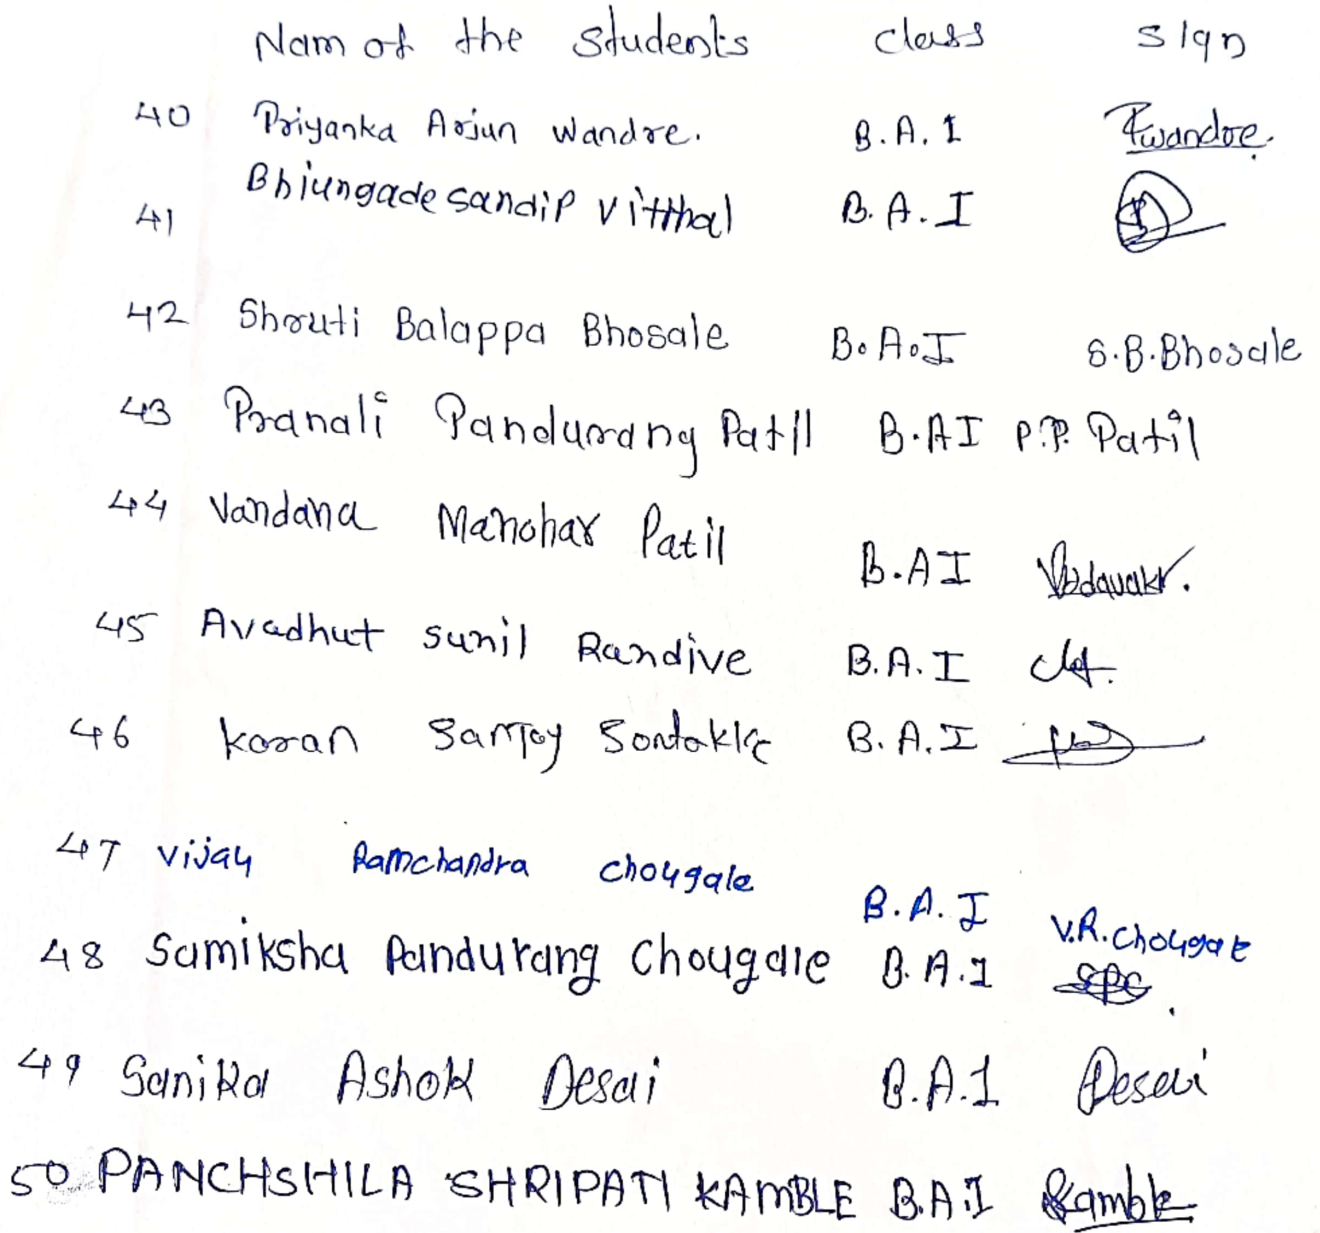 Nam of the students class sign
40 Priyanka Arjun Wandre. B.A. I Pwandre.
41 Bhiungade sandip vitthal B. A. I
42 Shruti Balappa Bhosale B.A.I S.B.Bhosale
43 Pranali Pandurang Patil B.AI P.P. Patil
44 Vandana Manohar Patil B.AI
45 Avadhut sunil Randive B.A. I
46 karan Sanjay Sontakke B. A. I
47 vijay Ramchandra chougale B.A. I V.R. chougale
48 Samiksha Pandurang Chougale B. A.I SPC
49 Sanika Ashok Desai B.A.I Desai
50 PANCHSHILA SHRIPATI KAMBLE B.A.I Kamble